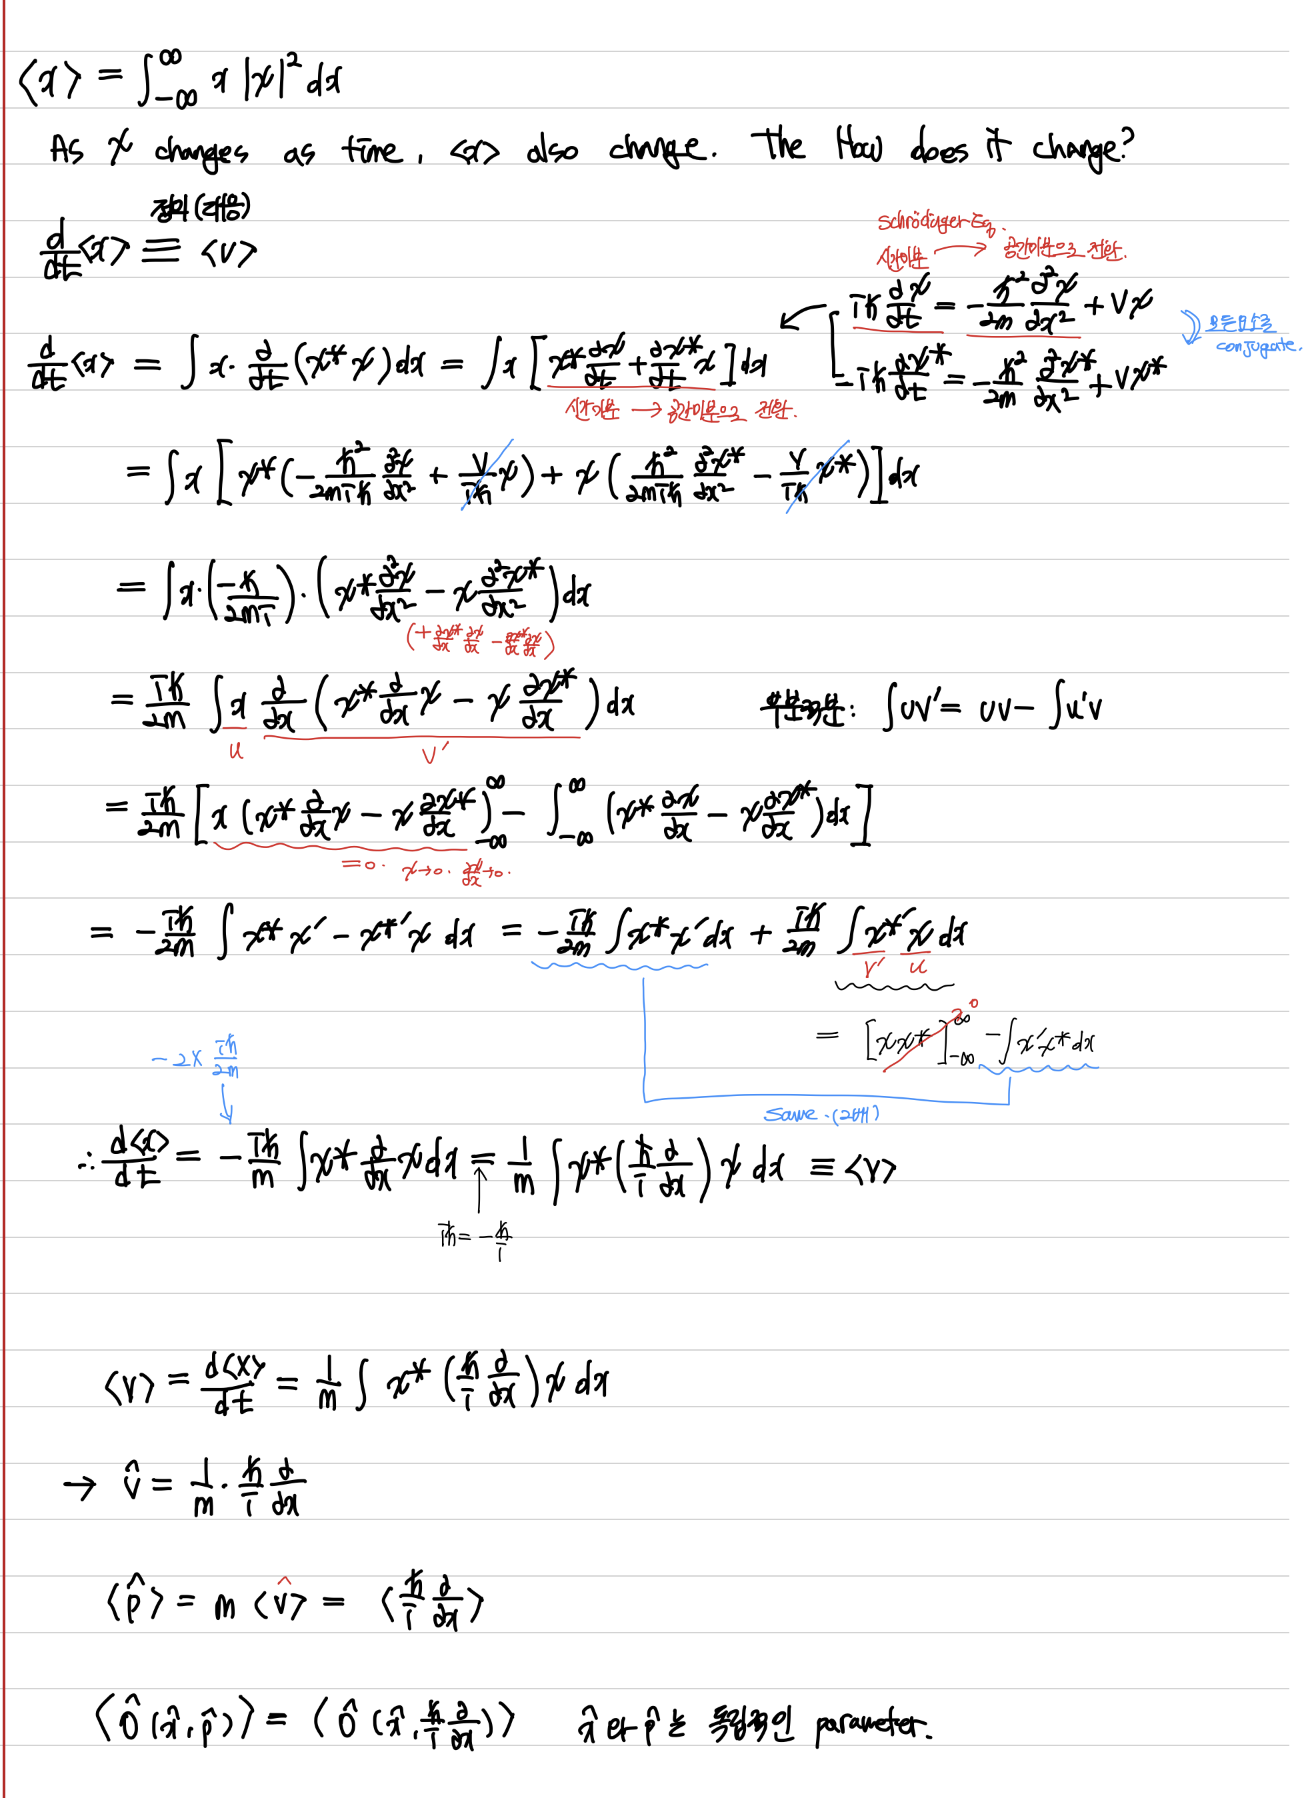 ⟨x⟩ = ∫_{-∞}^{∞} x |ψ|² dx
As ψ changes as time, ⟨x⟩ also change. The How does it change?
정의(대응)
d/dt ⟨x⟩ ≡ ⟨v⟩
Schrödinger Eq.
시간미분 → 공간미분으로 전환.
iħ ∂ψ/∂t = -ħ²/2m ∂²ψ/∂x² + Vψ
모든 요소를
conjugate.
-iħ ∂ψ*/∂t = -ħ²/2m ∂²ψ*/∂x² + Vψ*
d/dt ⟨x⟩ = ∫ x · ∂/∂t (ψ*ψ) dx = ∫ x [ψ* ∂ψ/∂t + ∂ψ*/∂t ψ] dx
시간미분 → 공간미분으로 전환.
= ∫ x [ψ* (-ħ²/2miħ ∂²ψ/∂x² + V/iħ ψ) + ψ (ħ²/2miħ ∂²ψ*/∂x² - V/iħ ψ*)] dx
= ∫ x · (-ħ/2mi) · (ψ* ∂²ψ/∂x² - ψ ∂²ψ*/∂x²) dx
(+ ∂ψ*/∂x ∂ψ/∂x - ∂ψ*/∂x ∂ψ/∂x)
= iħ/2m ∫ x ∂/∂x (ψ* ∂/∂x ψ - ψ ∂ψ*/∂x) dx
부분적분: ∫uv' = uv - ∫u'v
u v'
= iħ/2m [x (ψ* ∂/∂x ψ - ψ ∂ψ*/∂x)_{-∞}^{∞} - ∫_{-∞}^{∞} (ψ* ∂ψ/∂x - ψ ∂ψ*/∂x) dx]
= 0. ψ→0. ∂ψ/∂x→0.
= -iħ/2m ∫ ψ*ψ' - ψ*'ψ dx = -iħ/2m ∫ψ*ψ' dx + iħ/2m ∫ψ*'ψ dx
v' u
= [ψψ*]_{-∞}^{∞} 0 - ∫ψ'ψ* dx
-2× iħ/2m
Same.(2배)
∴ d⟨x⟩/dt = -iħ/m ∫ψ* ∂/∂x ψ dx = 1/m ∫ψ* (ħ/i ∂/∂x) ψ dx ≡ ⟨v⟩
iħ = -ħ/i
⟨v⟩ = d⟨x⟩/dt = 1/m ∫ ψ* (ħ/i ∂/∂x) ψ dx
→ v̂ = 1/m · ħ/i ∂/∂x
⟨p̂⟩ = m ⟨v̂⟩ = ⟨ħ/i ∂/∂x⟩
⟨Ô(x̂, p̂)⟩ = ⟨Ô(x̂, ħ/i ∂/∂x)⟩ x̂와 p̂는 독립적인 parameter.